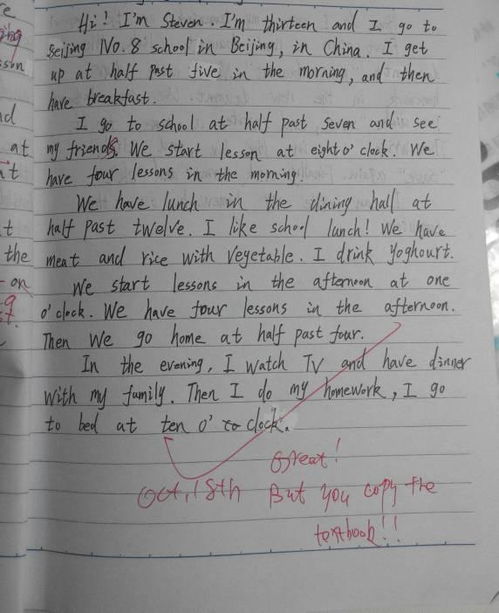 Hi! I'm Steven. I'm thirteen and I go to
Beijing No. 8 school in Beijing, in China. I get
up at half past five in the morning, and then
have breakfast.
I go to school at half past seven and see
my friends. We start lesson at eight o' clock. We
have four lessons in the morning.
We have lunch in the dining hall at
half past twelve. I like school lunch! We have
meat and rice with vegetable. I drink yoghourt.
We start lessons in the afternoon at one
o' clock. We have four lessons in the afternoon.
Then we go home at half past four.
In the evening, I watch TV and have dinner
with my family. Then I do my homework, I go
to bed at ten o' clock.
Great!
Oct, 18th But you copy the
textbook!!
at
the
on